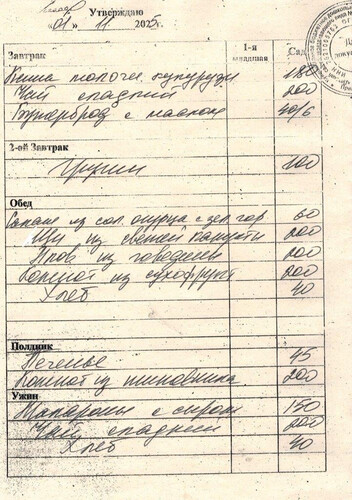 Утверждаю
«01» 11 2025
Завтрак
1-я младшая
Сад
Каша молочн. кукурузн 180
Чай сладкий 200
Бутерброд с маслом 40/6
2-ой Завтрак
Груши 100
Обед
Салат из сол. огурца с зел. гор. 60
Щи из свежей капусты 200
Плов из говядины 200
Компот из сухофрукт 200
Хлеб 40
Полдник
Печенье 45
Компот из шиповника 200
Ужин
Макароны с сыром 150
Чай сладкий 200
Хлеб 40